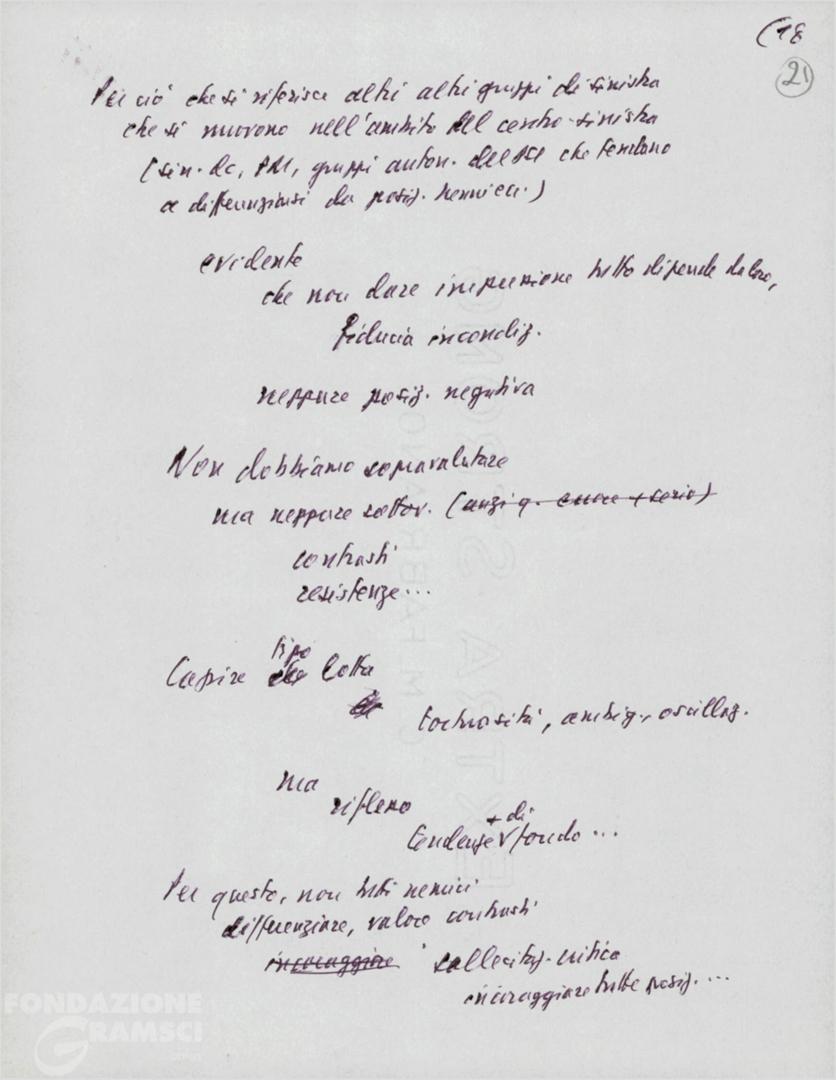 (18
21
Per ciò che si riferisce altri altri gruppi di sinistra
che si muovono nell'ambito del centro-sinistra
(sin. dc, PRI, gruppi auton. del PSI che tendono
a differenziarsi da posiz. nenniea.)
evidente
che non dare impressione tutto dipende da loro,
fiducia incondiz.
neppure posiz. negativa
Non dobbiamo sopravalutare
ma neppure sottov. (anzi q. errore + serio)
contrasti
resistenze...
tipo
Capire che lotta
tortuosità, ambig., oscillaz.
ma
riflesso
+ di
tendenze fondo ...
Per questo, non tutti nemici
differenziare, valore contrasti
incoraggiare sollecitaz. critica
incoraggiare tutte posiz. ...
FONDAZIONE
GRAMSCI